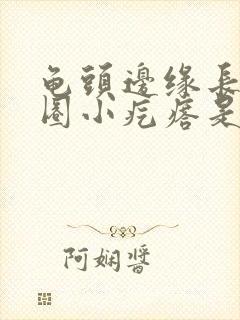 龟頭邊缘長
圈小疙瘩是
阿娴醬